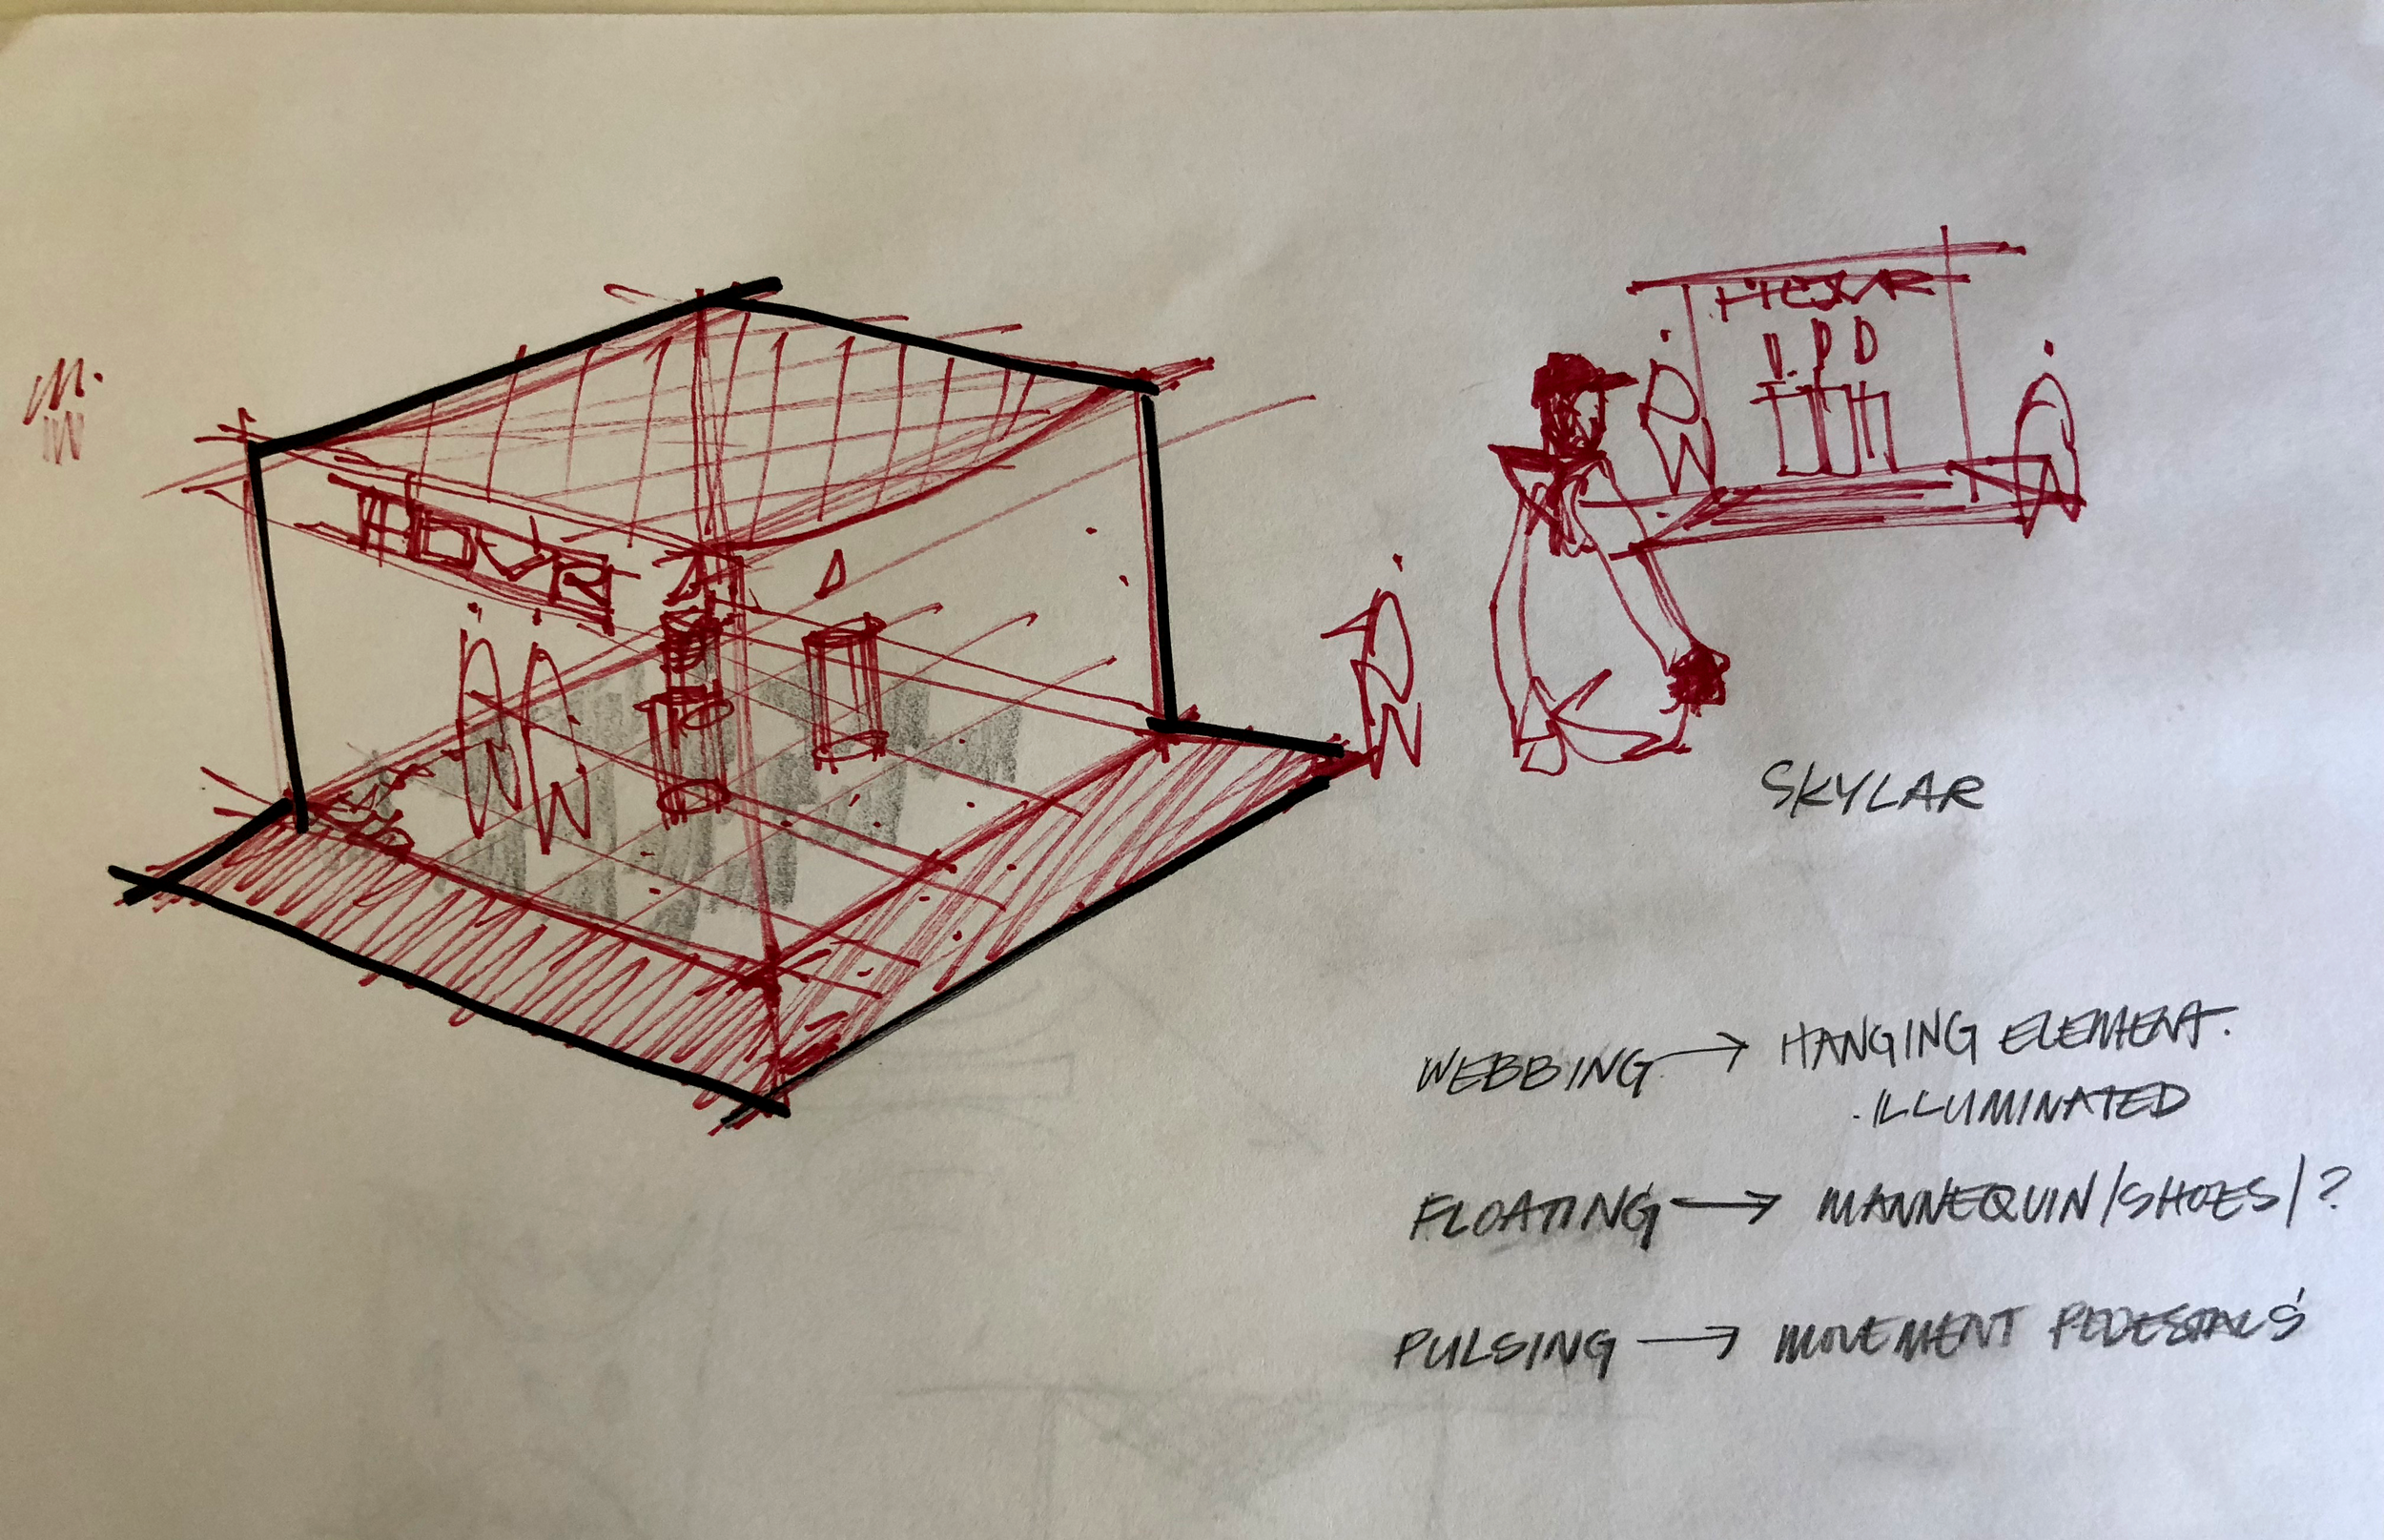 HOVR
HOVR
SKYLAR
WEBBING → HANGING ELEMENT.
· ILLUMINATED
FLOATING → MANNEQUIN/SHOES/?
PULSING → MOVEMENT PEDESTALS